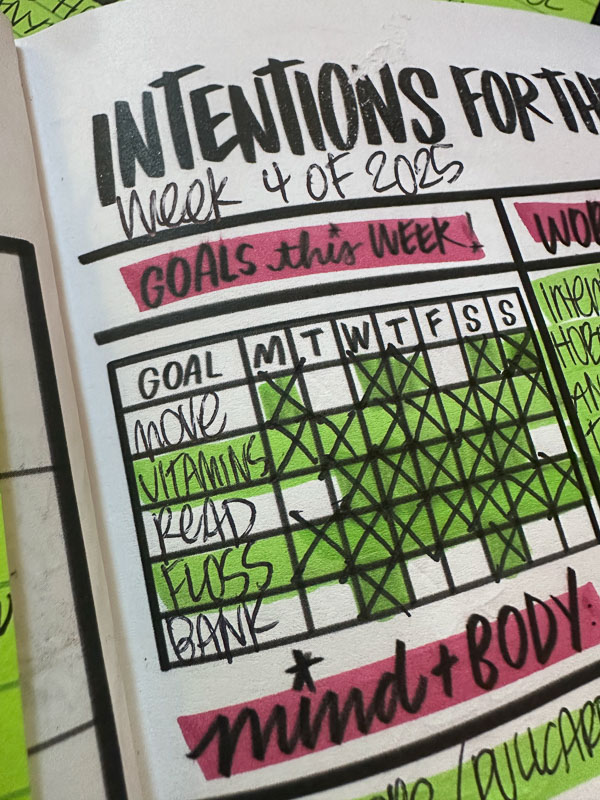 INTENTIONS FOR
Week 4 OF 2025
GOALS this WEEK!
GOAL M T W T F S S
MOVE
VITAMINS
READ
FLOSS
BANK
mind + BODY